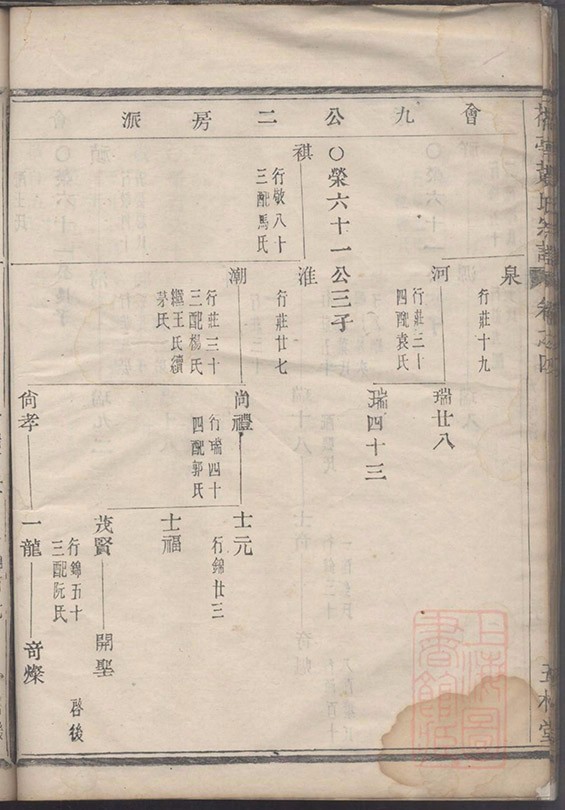 會九公二房派
泉
行莊十九
河
行莊三十
四配袁氏
瑞廿八
瑞四十三
〇榮六十一公三子
祺
行敬八十
三配馬氏
淮
行莊廿七
潮
行莊三十
三配楊氏
繼王氏續
茅氏
尚禮
行瑞四十
四配郭氏
士元
行錦廿三
士福
茂賢
開聖
啓後
尙孝
一龍
行錦五十
三配阮氏
奇燦
卷之四
五桂堂
上海圖書館藏